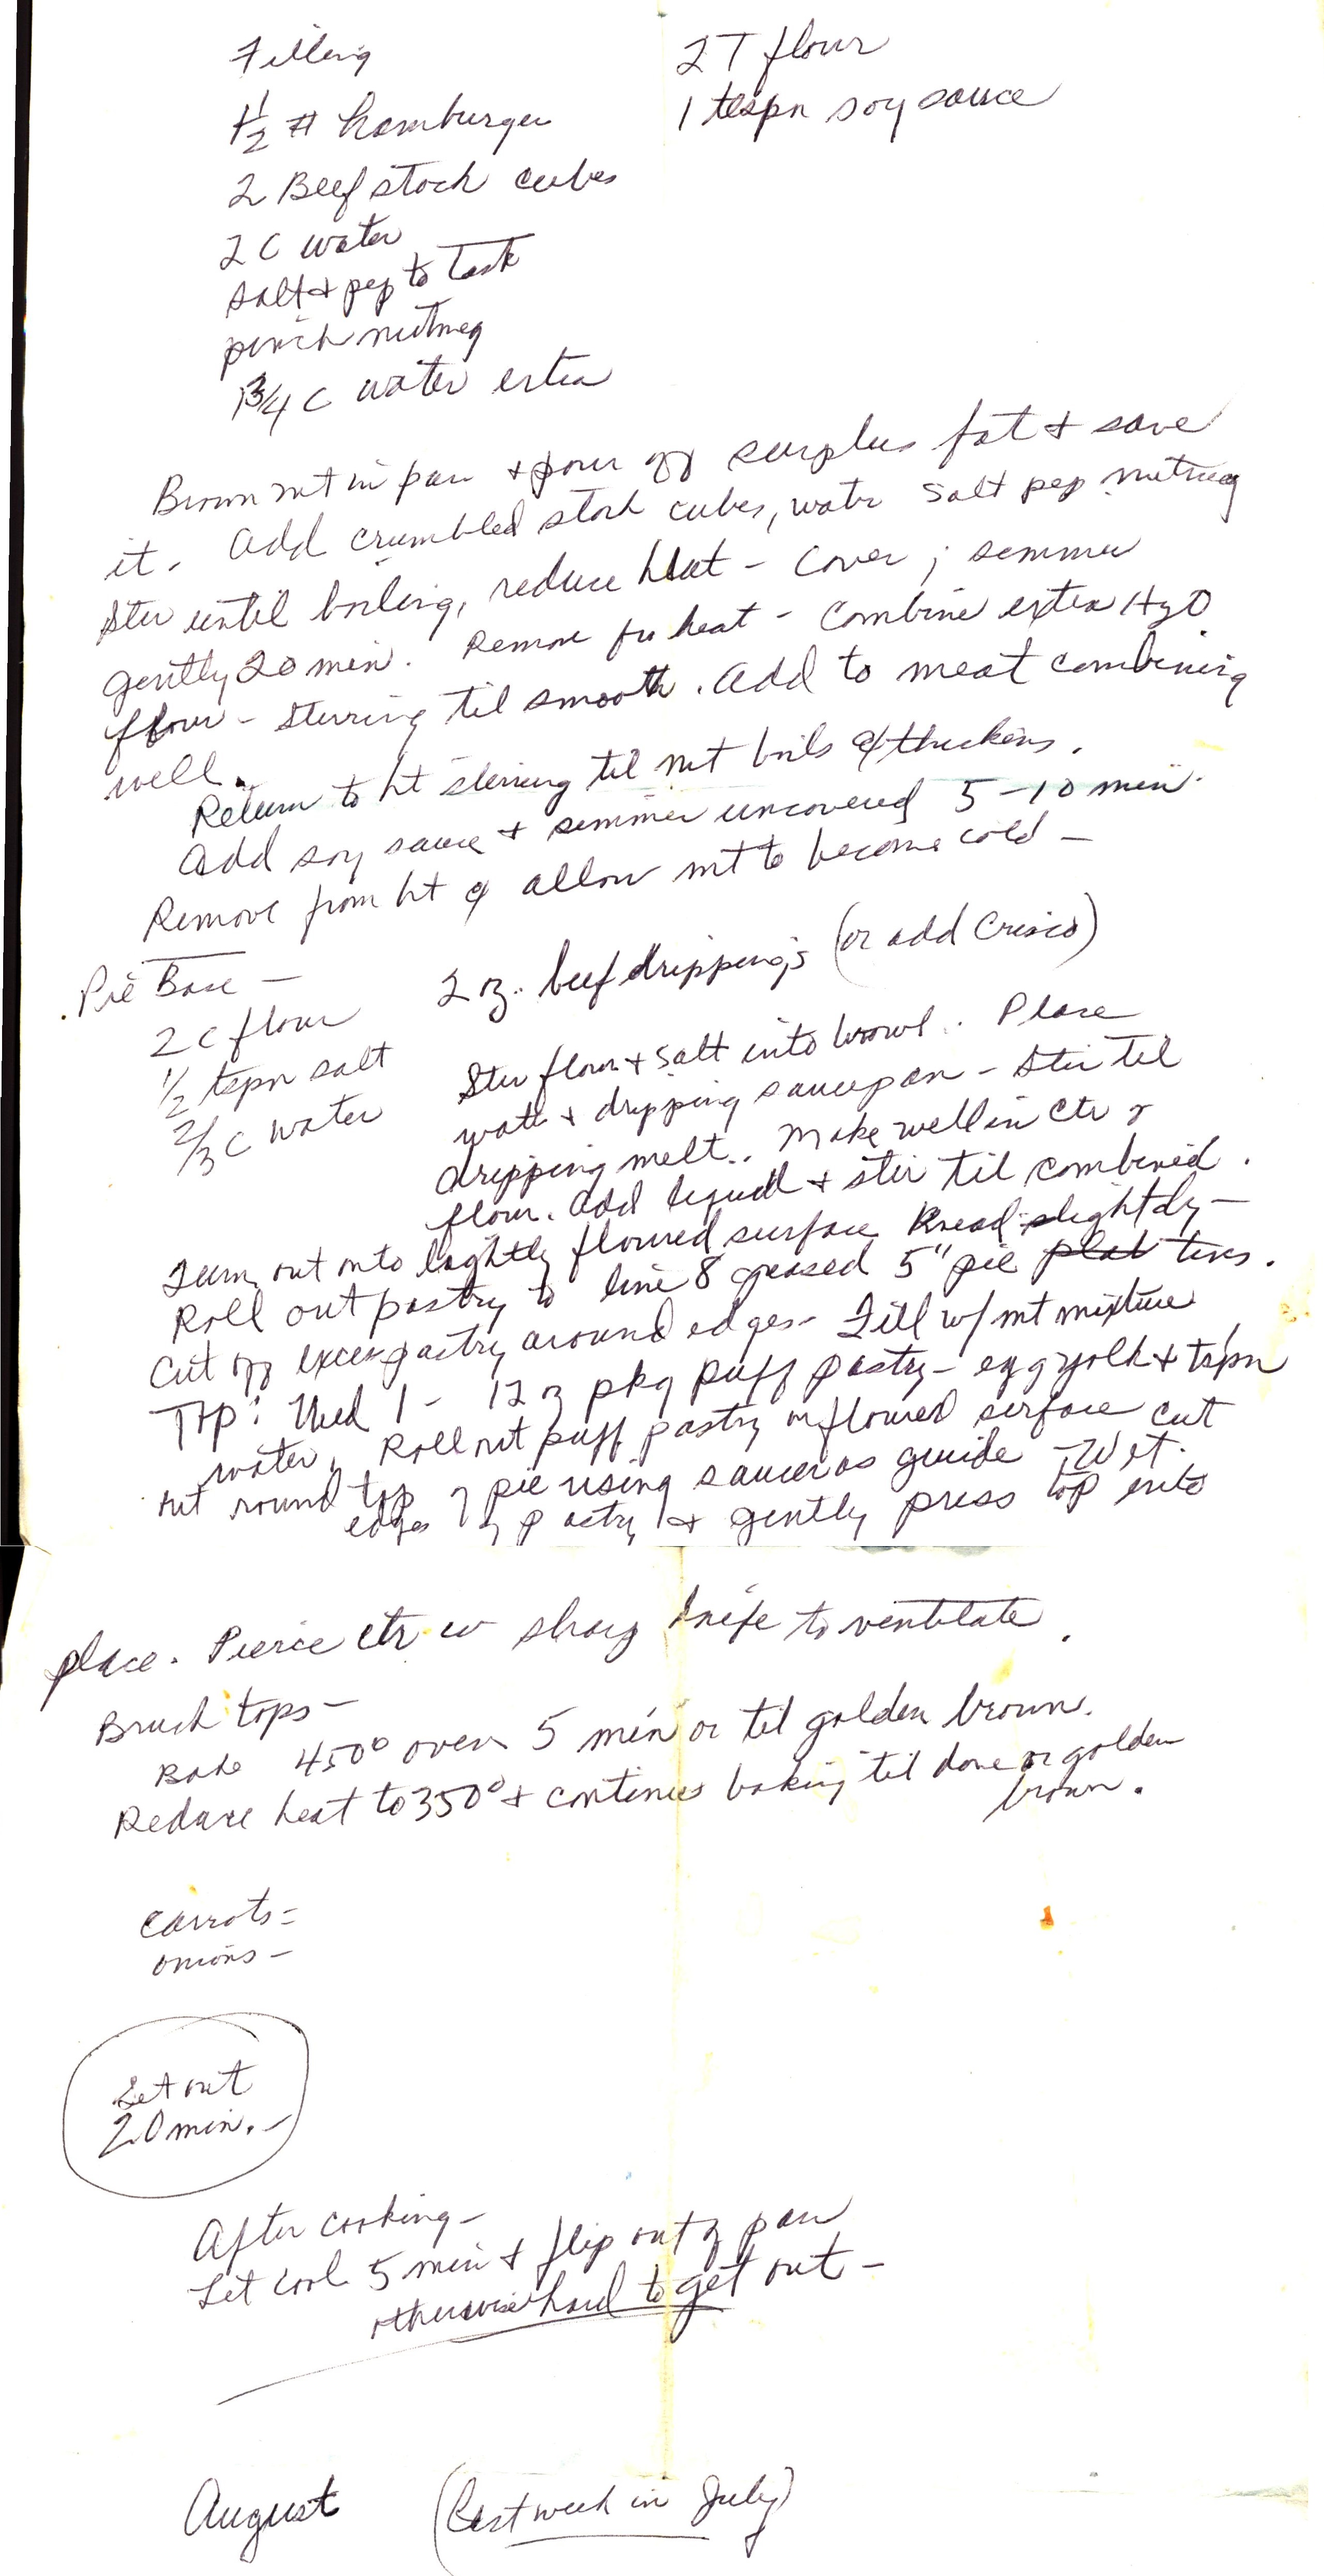 Filling
1 1/2 # hamburger
2 Beef stock cubes
2 C water
salt & pep to taste
pinch nutmeg
1 3/4 C water extra
2 T flour
1 teaspn soy sauce
Brown mt in pan & pour off surplus fat & save
it. Add crumbled stock cubes, water salt pep nutmeg
Stir until boiling, reduce heat - Cover ; simmer
gently 20 min. Remove fr heat - Combine extra H2O
flour - Stirring til smooth. Add to meat combining
well.
Return to ht stirring til mt boils & thickens.
Add soy sauce & simmer uncovered 5-10 min.
Remove from ht & allow mt to become cold -
Pie Base -
2 C flour
1/2 tspn salt
2/3 C water
2 oz. beef drippings (or add Crisco)
Stir flour & salt into bowl. Place
water & dripping saucepan - Stir til
dripping melt. Make well in Ctr of
flour. Add liquid & stir til combined.
Turn out onto lightly floured surface Knead slightly -
Roll out pastry to line 8 greased 5" pie plat tins.
Cut off excess pastry around edges - Fill w/ mt mixture
Top: Used 1 - 12 oz pkg puff pastry - egg yolk & tspn
water. Roll out puff pastry on floured surface cut
out round top of pie using saucer as guide - Wet
edges of pastry & gently press top into
place. Pierce ctr w sharp knife to ventilate.
Brush tops -
Bake 450° oven 5 min or til golden brown.
Reduce heat to 350° & continues baking til done or golden
brown.
Carrots -
onions -
Set out
20 min. -
After cooking -
Let cool 5 min & flip out of pan
otherwise hard to get out -
August (Last week in July)